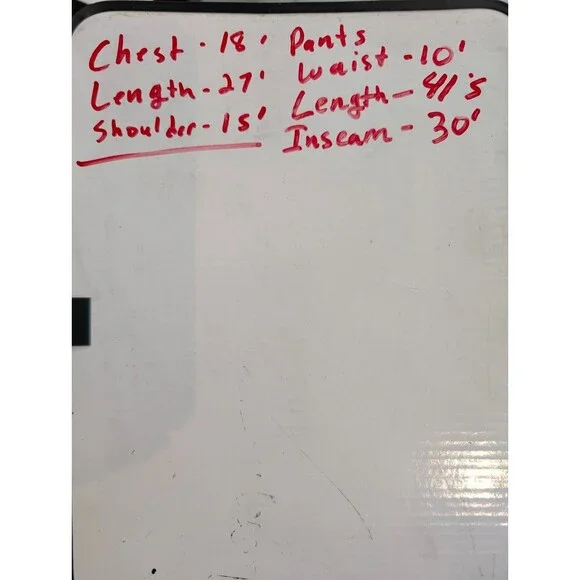 Chest - 18'
Length - 27'
Shoulder - 15'
Pants
Waist - 10'
Length - 41's
Inseam - 30'